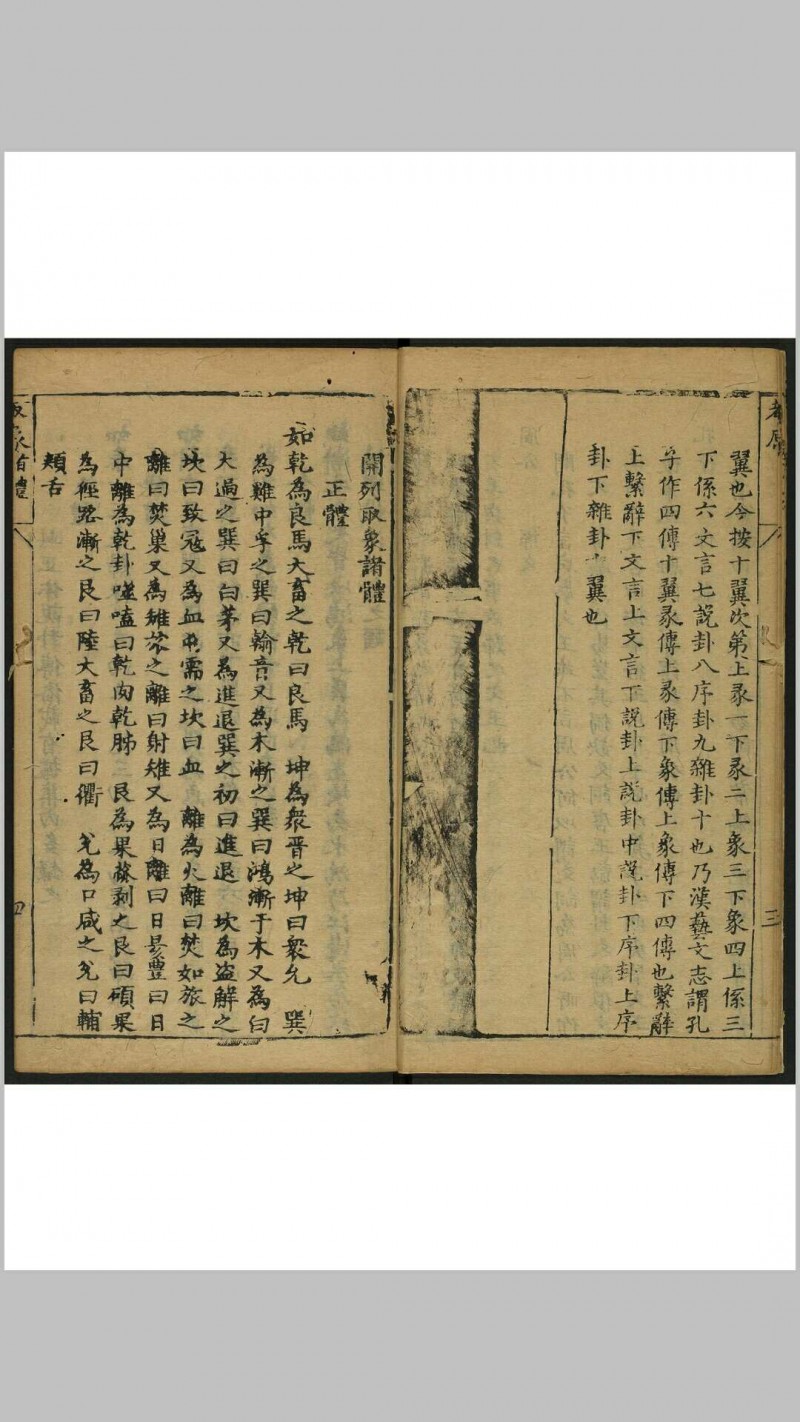 翼也今按十翼次第上彖一下彖二上象三下象四上係三
下係六文言七說卦八序卦九雜卦十也乃漢藝文志謂孔
子作四傳十翼彖傳上彖傳下象傳上象傳下四傳也繫辭
上繫辭下文言上文言下說卦上說卦中說卦下序卦上序
卦下雜卦十翼也
三
開列取象諸體
正體
如乾為良馬大畜之乾曰良馬 坤為衆晋之坤曰衆允 巽
為雞中孚之巽曰翰音又為木漸之巽曰鴻漸于木又為白
大過之巽曰白茅又為進退巽之初曰進退 坎為盜解之
坎曰致寇又為血卦需之坎曰血 離為火離曰焚如旅之
離曰焚巢又為雉旅之離曰射雉又為日離曰日昃豐曰日
中離為乾卦噬嗑曰乾肉乾胏 艮為果蓏剥之艮曰碩果
為徑路漸之艮曰陸大畜之艮曰衢 兌為口咸之兌曰輔
頰舌